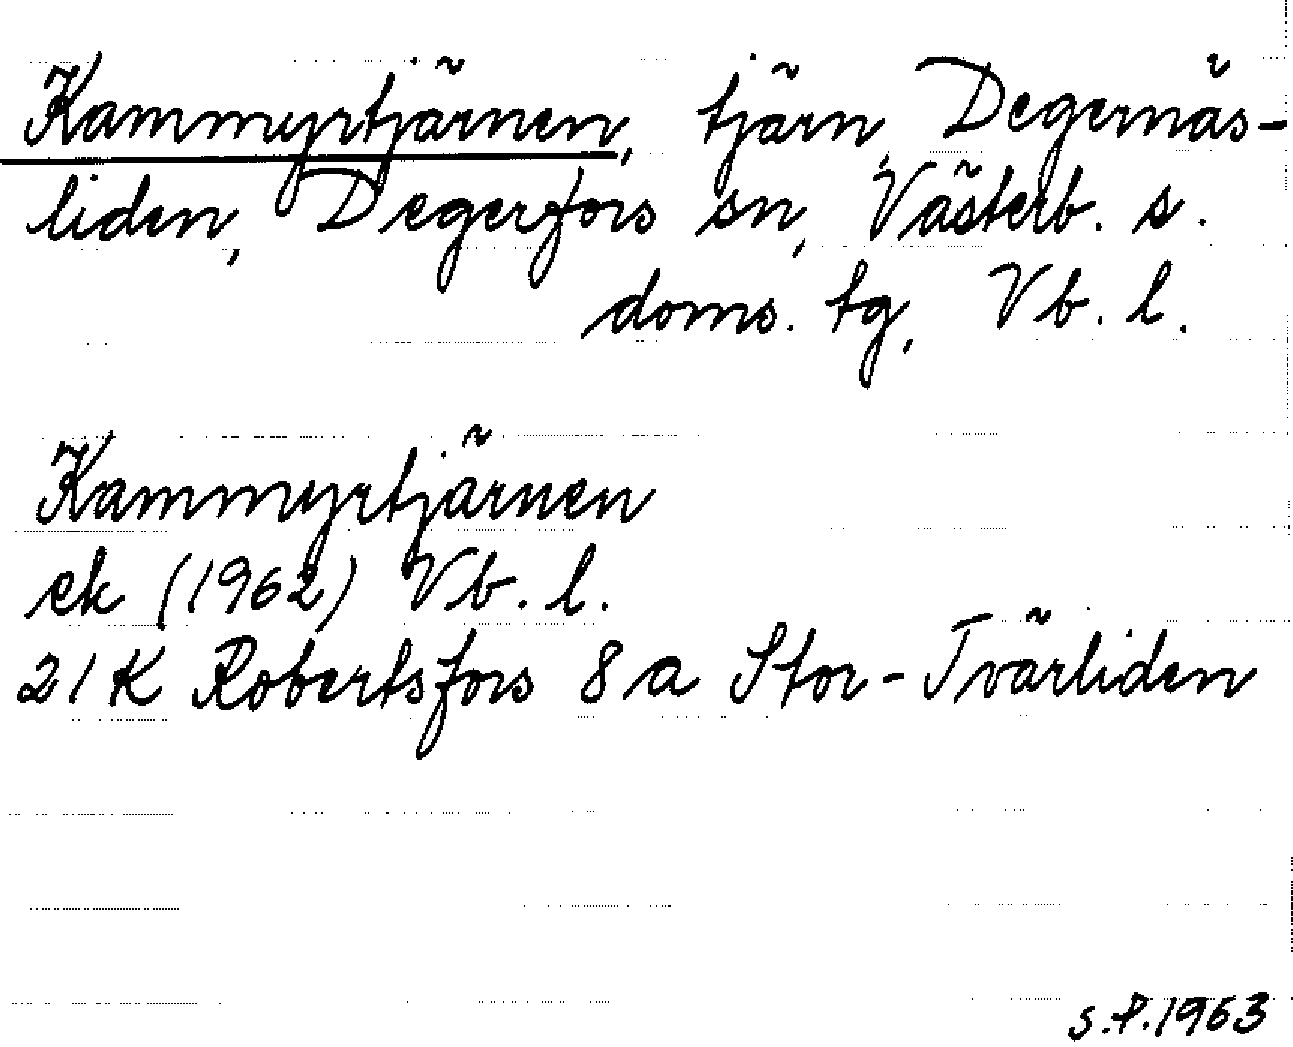 Kammyrtjärnen, tjärn, Degernäs-
liden, Degerfors sn, Västerb. s.
doms. tg, Vb. l.
Kammyrtjärnen
ek (1962) Vb. l.
21 K Robertsfors 8 a Stor-Tvärliden
S.P. 1963